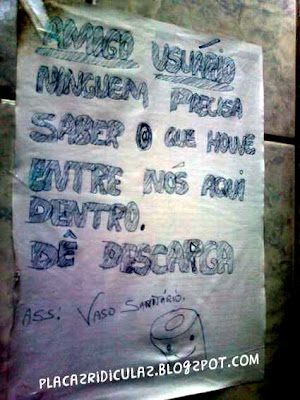 AMIGO USUÁRIO
NINGUEM PRECISA
SABER O QUE HOUVE
ENTRE NÓS AQUI
DENTRO.
DÊ DESCARGA
ASS: VASO SANITÁRIO.
PLACAZRIDICULAZ.BLOGZPOT.COM